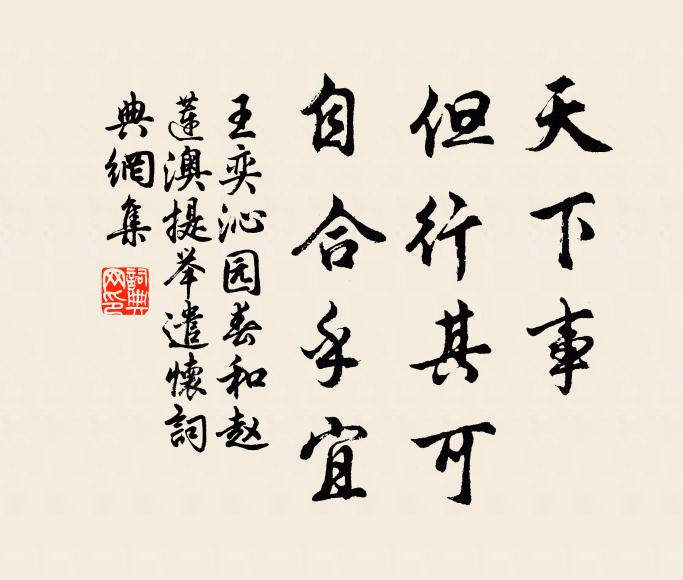 天下事
但行其可
自合乎宜
王奕沁园春和赵
莲澳提举遣懷詞
典網集
詞典网印